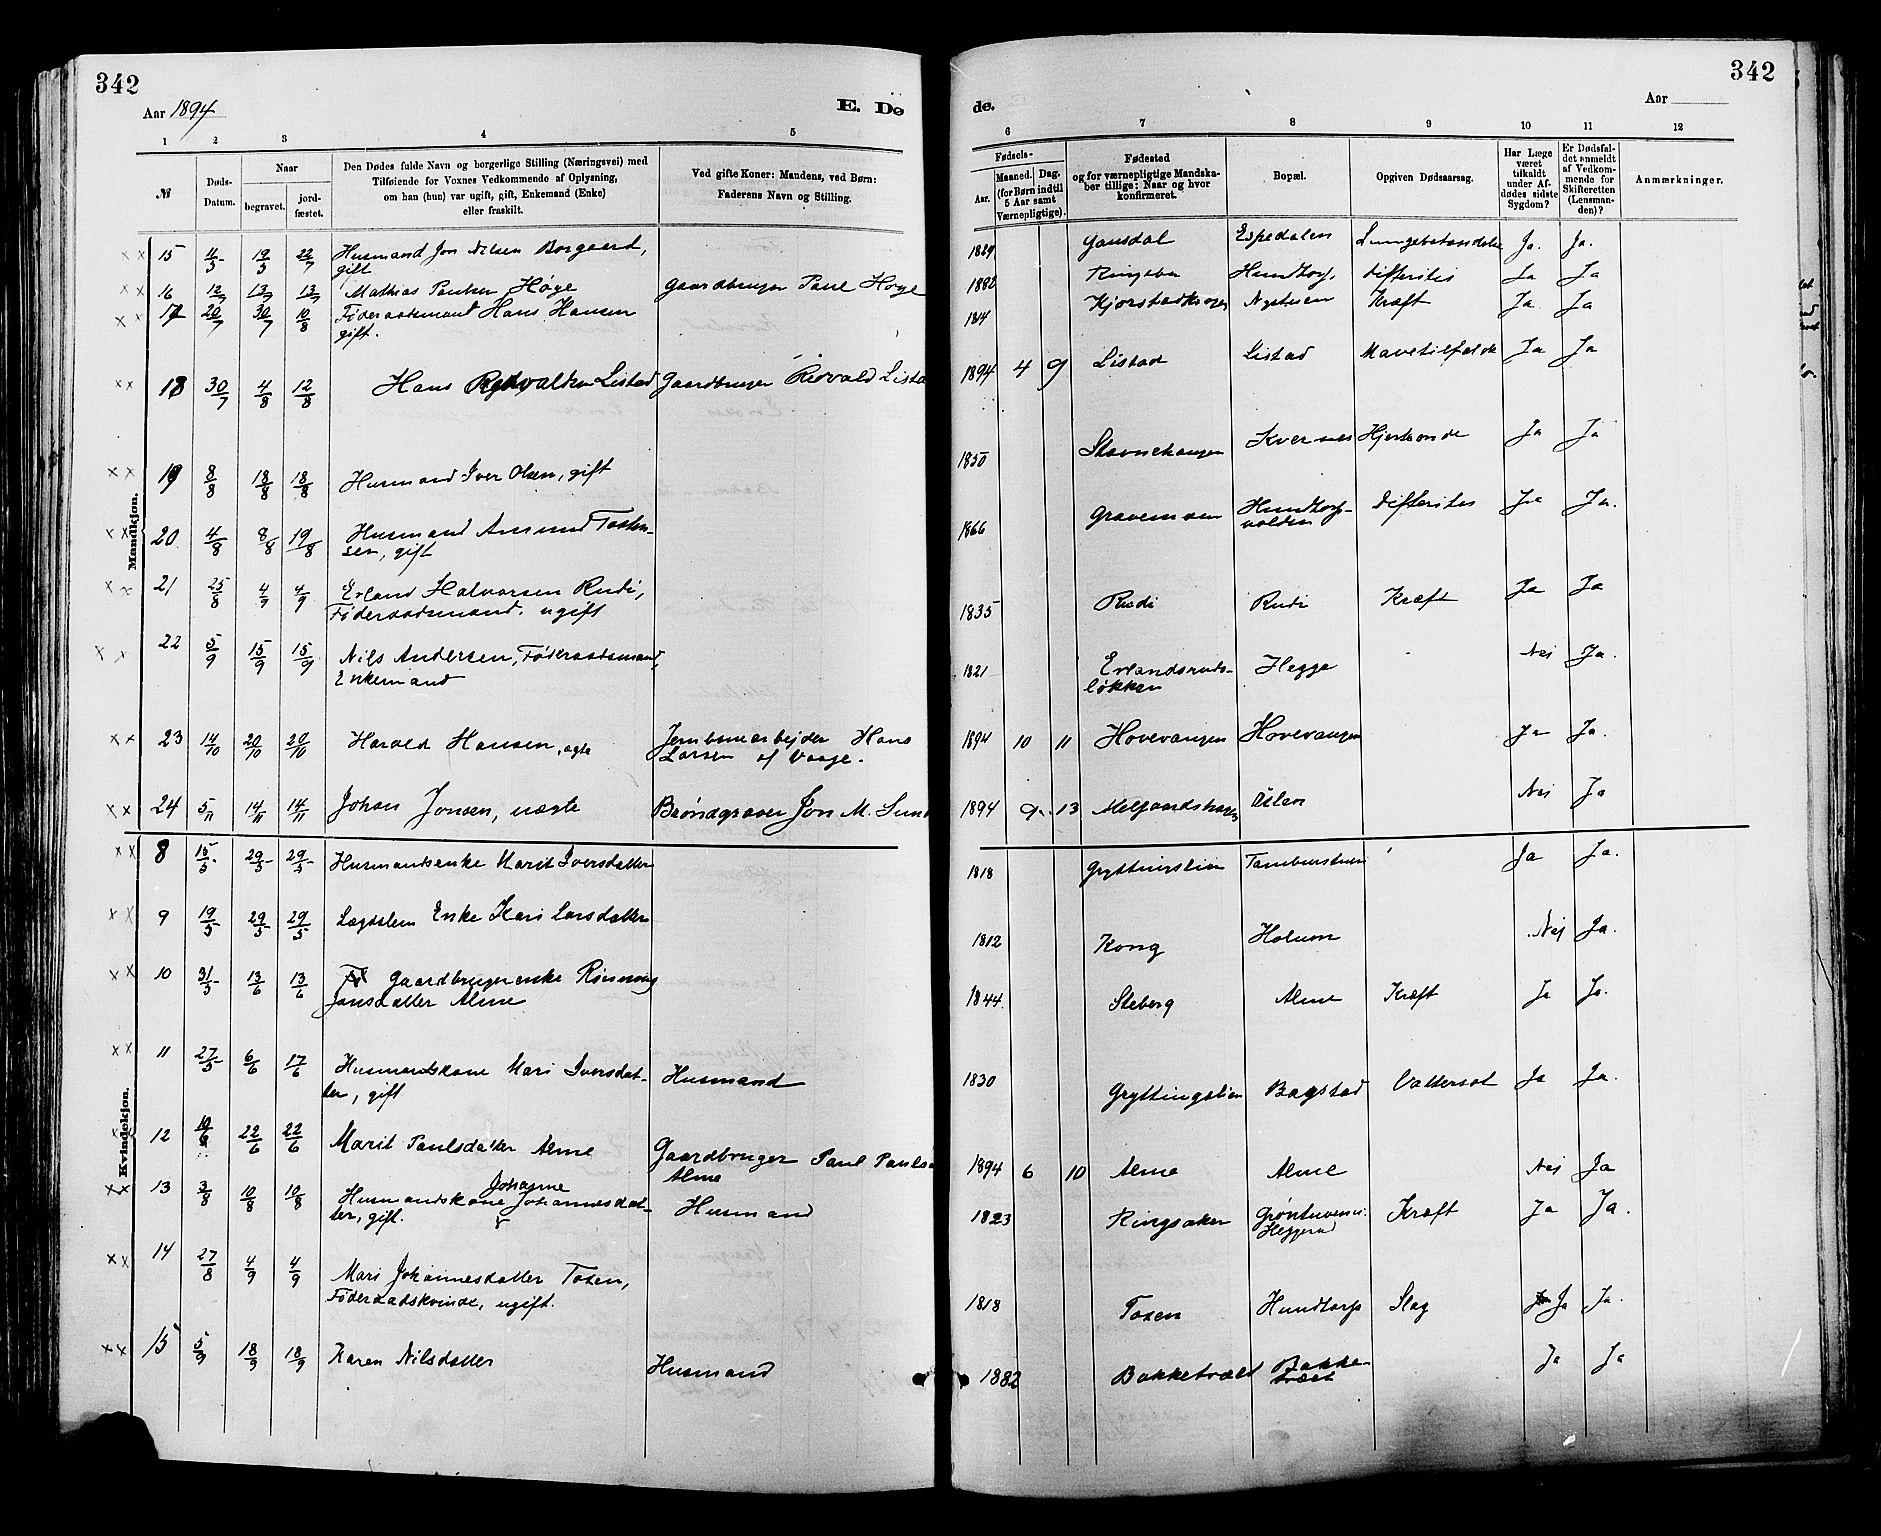 342
Aar 1894
E. Dø
1 2 3 4 5
№
Døds-Datum.
Naar
begravet.
jordfæstet.
Den Dødes fulde Navn og borgerlige Stilling (Næringsvei) med
Tilføiende for Voxnes Vedkommende af Oplysning,
om han (hun) var ugift, gift, Enkemand (Enke)
eller fraskilt.
Ved gifte Koner: Mandens, ved Børn:
Faderens Navn og Stilling.
Mandkjøn.
15 19/5 22/7 Husmand Jon Nilsen
gift
16 12/7 13/7 13/7 Mathias Paulsen Høge Gaardbruger Paul Høge
17 20/7 30/7 10/8 Føderaadsmand Hans Hansen
gift.
18 30/7 4/8 12/8 Hans Listad Gaardbruger Ridvald Lista
19 8/8 18/8 18/8 Husmand Iver Olsen, gift
20 4/8 8/8 19/8 Husmand Amund Tosten-
sen, gift
21 25/8 4/9 4/9 Erland Halvorsen Rudi,
Føderaadsmand, ugift
22 5/9 15/9 15/9 Nils Andersen, Føderaadsmand,
Enkemand
23 14/10 20/10 20/10 Harald Hansen, ægte Jernbanearbejder Hans
Larsen af Vaage.
24 5/11 14/11 14/11 Johan Jonsen, uægte Brøndgraver Jon M. Sun
Kvindekjøn.
8 15/5 29/5 29/5 Husmandsenke Marit Iversdatter
9 19/5 29/5 29/5 Lægdslem Enke Kari Larsdatter
10 31/5 13/6 13/6 Gaardbrugerenke Rønnoug
Jonsdatter Alme
11 27/5 6/6 17/6 Husmandskone Mari Iversdat-
ter, gift Husmand
12 22/6 22/6 Marit Paulsdatter Alme Gaardbruger Paul Pauls
Alme
Johanne
13 3/8 10/8 10/8 Husmandskone Johannesdat-
ter, gift. Husmand
14 27/8 4/9 4/9 Mari Johannesdatter Toxen,
Føderaadskvinde, ugift.
15 5/9 18/9 18/9 Karen Nilsdatter Husmand
342
de.
Aar
6 7 8 9 10 11 12
Fødsels-
Aar.
Maaned. Dag.
(for Børn indtil
5 Aar samt
Værnepligtige).
Fødested
og for værnepligtige Mandska-
ber tillige: Naar og hvor
konfirmeret.
Bopæl.
Opgiven Dødsaarsag.
Har Læge
været
tilkaldt
under Af-
dødes sidste
Sygdom?
Er Dødsfal-
det anmeldt
af Vedkom-
mende for
Skifteretten
(Lensman-
den)?
Anmærkninger.
1829 Gausdal Espedalen Lungebetændelse Ja. Ja.
1882 Ringebu Hundtorp Difteritis Ja Ja
1814 Nystuen Kræft Ja Ja
1894 4 9 Listad Listad Mavetilfælde Ja Ja
1850 Kvernes Hjerteonde Ja Ja
1866 Gravemoen Hundtorp-
volden Difterites Ja Ja.
1835 Rudi Rudi Kræft Ja Ja
1821 Erlandsruds-
løkken Hegge Nei Ja.
1894 10 11 Hovevangen Hovevangen Ja Ja.
1894 9 13 Øilen Nei Ja
1818 Gryttingslien Ja Ja.
1812 Kong Nei Ja.
1844 Steberg Alme Kræft Ja Ja.
1830 Gryttingslien Bagstad Vattersot Ja Ja.
1894 6 10 Alme Alme Nei Ja
1823 Ringsaker Grøntuven u.
Heggerud Kræft Ja Ja.
1818 Toxen Hundtorp Slag Ja Ja.
1882 Bakketræet Bakke-
træet Ja Ja